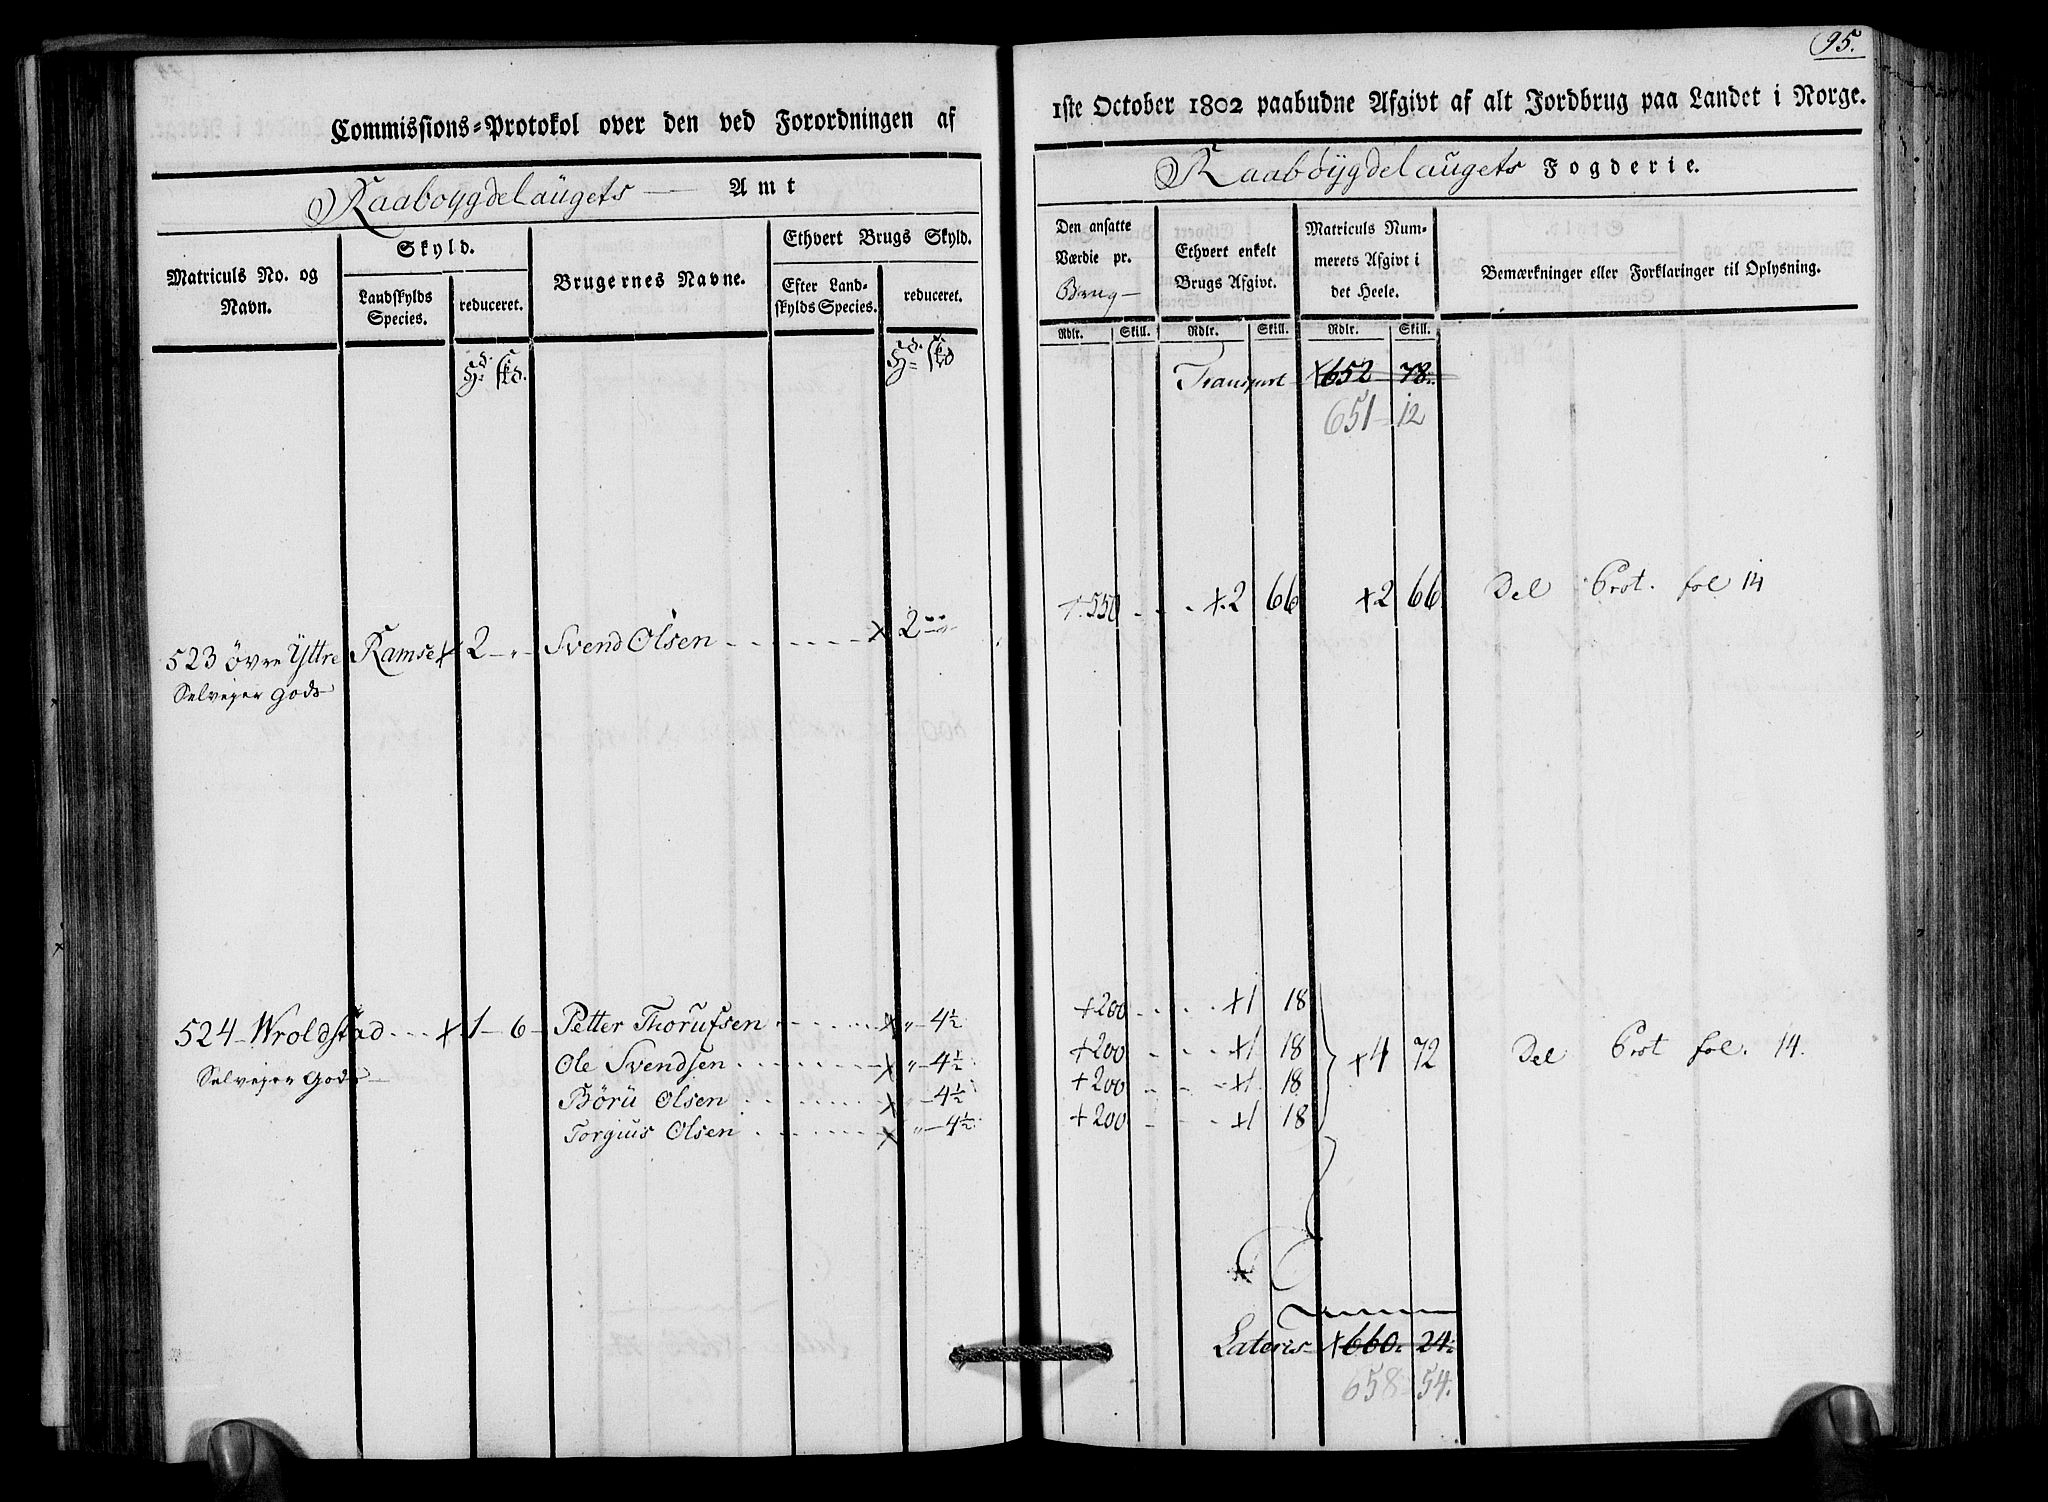 95.
Commissions-Protokol over den ved Forordningen af
1ste October 1802 paabudne Afgivt af alt Jordbrug paa Landet i Norge.
Raaboygdelaugets — Amt
Raaböygdelaugets Fogderie.
Matriculs No. og Navn.
Skyld.
Landskylds Species.
reduceret.
Brugernes Navne.
Ethvert Brugs Skyld.
Efter Landskylds Species.
reduceret.
Den ansatte Værdie pr. Brug —
Ethvert enkelt Brugs Afgivt.
Matriculs Nummerets Afgivt i det Heele.
Bemærkninger eller Forklaringer til Oplysning.
Rdlr. Skill. Rdlr. Skill. Rdlr. Skill.
Transport 652 78.
651 12
523 Övre Yttre Ramse x 2 — „ — Svend Olsen x 2 „ „ + 550 x 2 66 x 2 66 Del Prot. fol 14
Selveyer Gods
524 — Wroldstad x 1 — 6 — Petter Thorufsen x „ — 4½ + 200 x 1 18
Ole Svendsen x „ — 4½ + 200 x 1 18 x 4 72 Del Prot fol. 14.
Selveyer Gods —
Börü Olsen x „ — 4½ + 200 x 1 18
Torgius Olsen x „ — 4½ + 200 x 1 18
Lateris x 660. 24.
658 54.